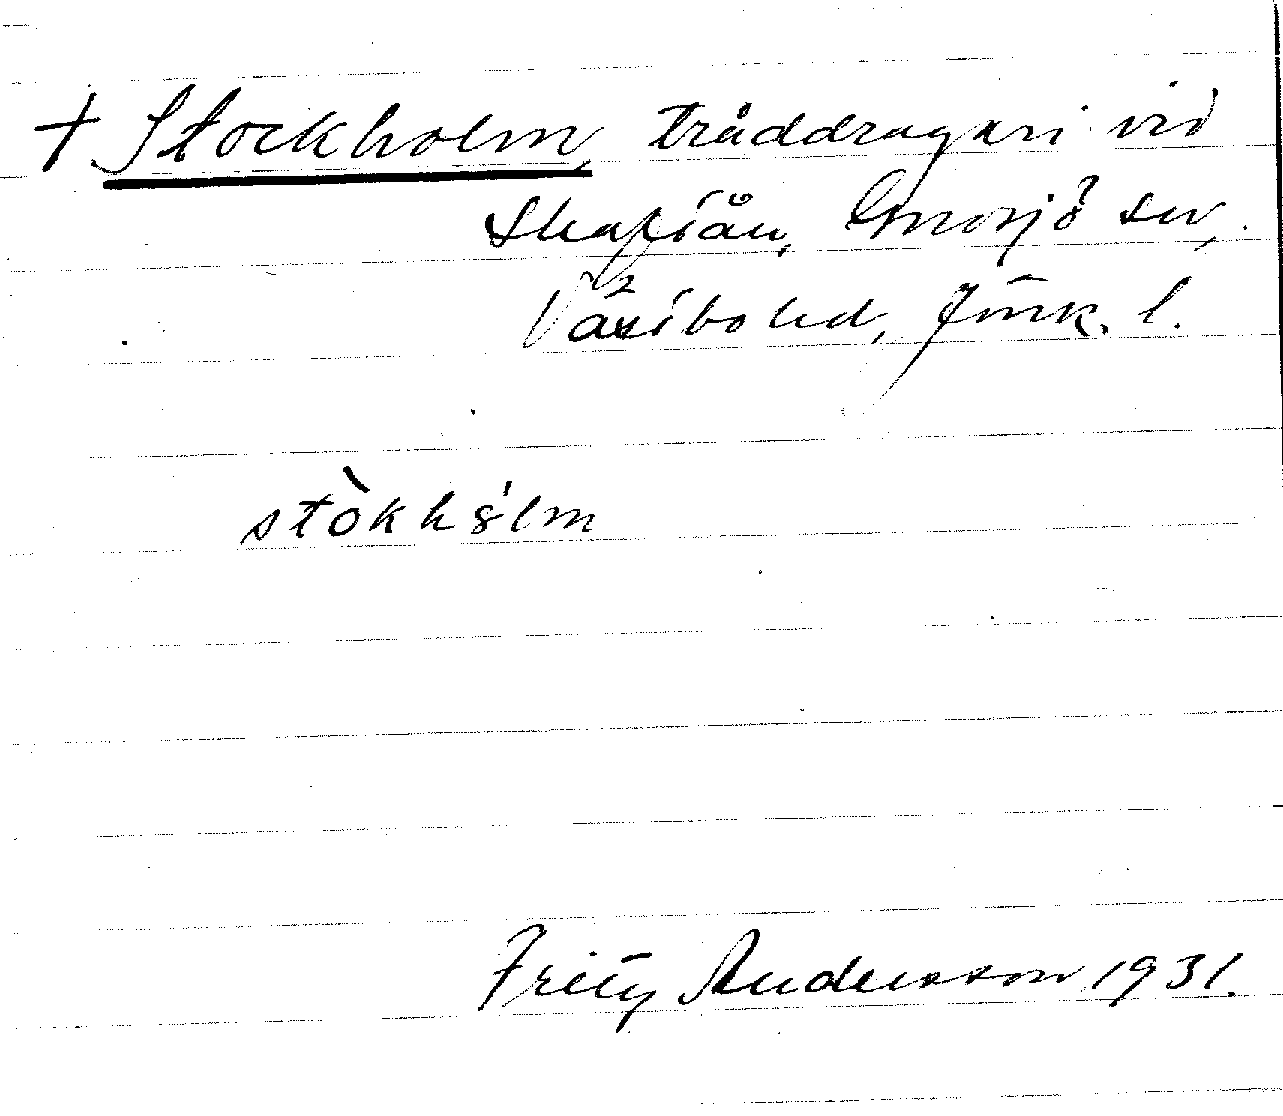 † Stockholm, tråddrageri vid
Skafsån, Gnosjö sn,
Västbo hd, Jönk. l.
stòkhólm
Fritz Andersson 1931.